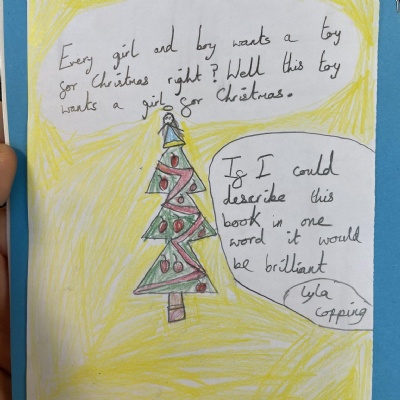 Every girl and boy wants a toy
for Christmas right? Well this toy
wants a girl for Christmas.
If I could
describe this
book in one
word it would
be brilliant
Lyla
Copping